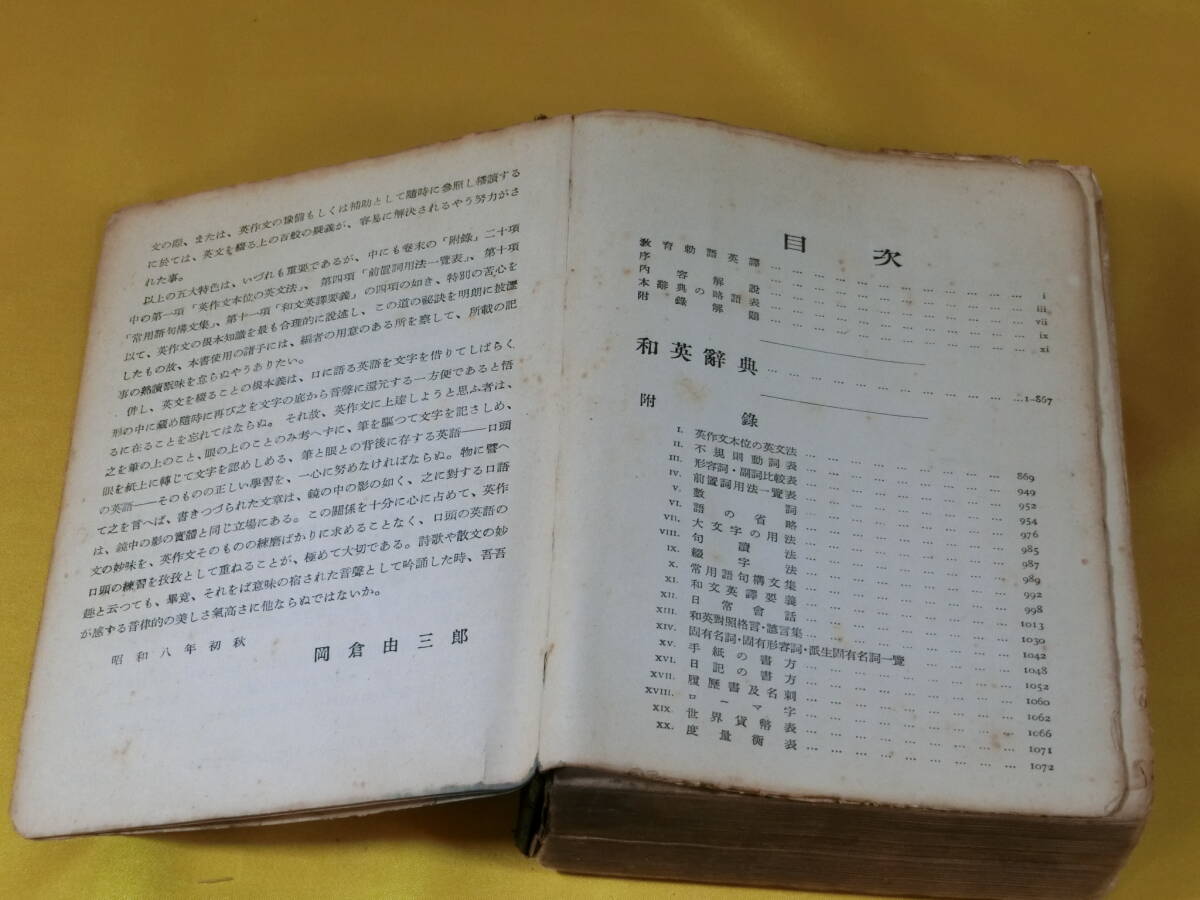 文の際、または、英作文の豫備もしくは補助として隨時に參照し繙讀する
に於ては、英文を綴る上の百般の疑義が、容易に解決されるやう努力がさ
れた事。
以上の五大特色は、いづれも重要であるが、中にも卷末の「附錄」二十項
中の第一項「英作文本位の英文法」、第四項「前置詞用法一覽表」、第十項
「常用語句構文集」、第十一項「和文英譯要義」の四項の如き、特別の苦心を
以て、英作文の根本知識を最も合理的に說述し、この道の祕訣を明朗に披瀝
したもの故、本書使用の諸子には、編者の用意のある所を察して、所載の記
事の熟讀翫味を怠らぬやうありたい。
併し、英文を綴ることの根本義は、口に語る英語を文字を借りてしばらく
形の中に藏め隨時に再び之を文字の底から音聲に還元する一方便であると悟
るに在ることを忘れてはならぬ。それ故、英作文に上達しようと思ふ者は、
之を筆の上のこと、眼の上のことのみ考へずに、筆を驅つて文字を記さしめ、
眼を紙上に轉じて文字を認めしめる、筆と眼との背後に存する英語——口頭
の英語——そのものの正しい學習を、一心に努めなければならぬ。物に譬へ
て之を言へば、書きつづられた文章は、鏡の中の影の如く、之に對する口語
は、鏡中の影の實體と同じ立場にある。この關係を十分に心に占めて、英作
文の妙味を、英作文そのものの練磨ばかりに求めることなく、口頭の英語の
口頭の練習を孜孜として重ねることが、極めて大切である。詩歌や散文の妙
趣と云つても、畢竟、それをば意味の宿された音聲として吟誦した時、吾吾
が感ずる音律的の美しさ氣高さに他ならぬではないか。
昭和八年初秋 岡倉由三郞
目次
敎育勅語英譯 … … … … … … … … … … i
序 … … … … … … … … … … iii
內容解說 … … … … … … … … … … vii
本辭典の略語表 … … … … … … … … … … ix
附錄解題 … … … … … … … … … … xi
和英辭典 … … … … … … … …1–867
附錄
I. 英作文本位の英文法 … … … … … … … … 869
II. 不規則動詞表 … … … … … … … … 949
III. 形容詞・副詞比較表 … … … … … … … … 952
IV. 前置詞用法一覽表 … … … … … … … … 954
V. 數詞 … … … … … … … … 976
VI. 語の省略 … … … … … … … … 985
VII. 大文字の用法 … … … … … … … … 987
VIII. 句讀法 … … … … … … … … 989
IX. 綴字法 … … … … … … … … 992
X. 常用語句構文集 … … … … … … … … 998
XI. 和文英譯要義 … … … … … … … … 1013
XII. 日常會話 … … … … … … … … 1030
XIII. 和英對照格言・諺言集 … … … … … … … … 1042
XIV. 固有名詞・固有形容詞・派生固有名詞一覽 … … … … … 1048
XV. 手紙の書方 … … … … … … … … 1052
XVI. 日記の書方 … … … … … … … … 1060
XVII. 履歷書及名刺 … … … … … … … … 1062
XVIII. ローマ字 … … … … … … … … 1066
XIX. 世界貨幣表 … … … … … … … … 1071
XX. 度量衡表 … … … … … … … … 1072